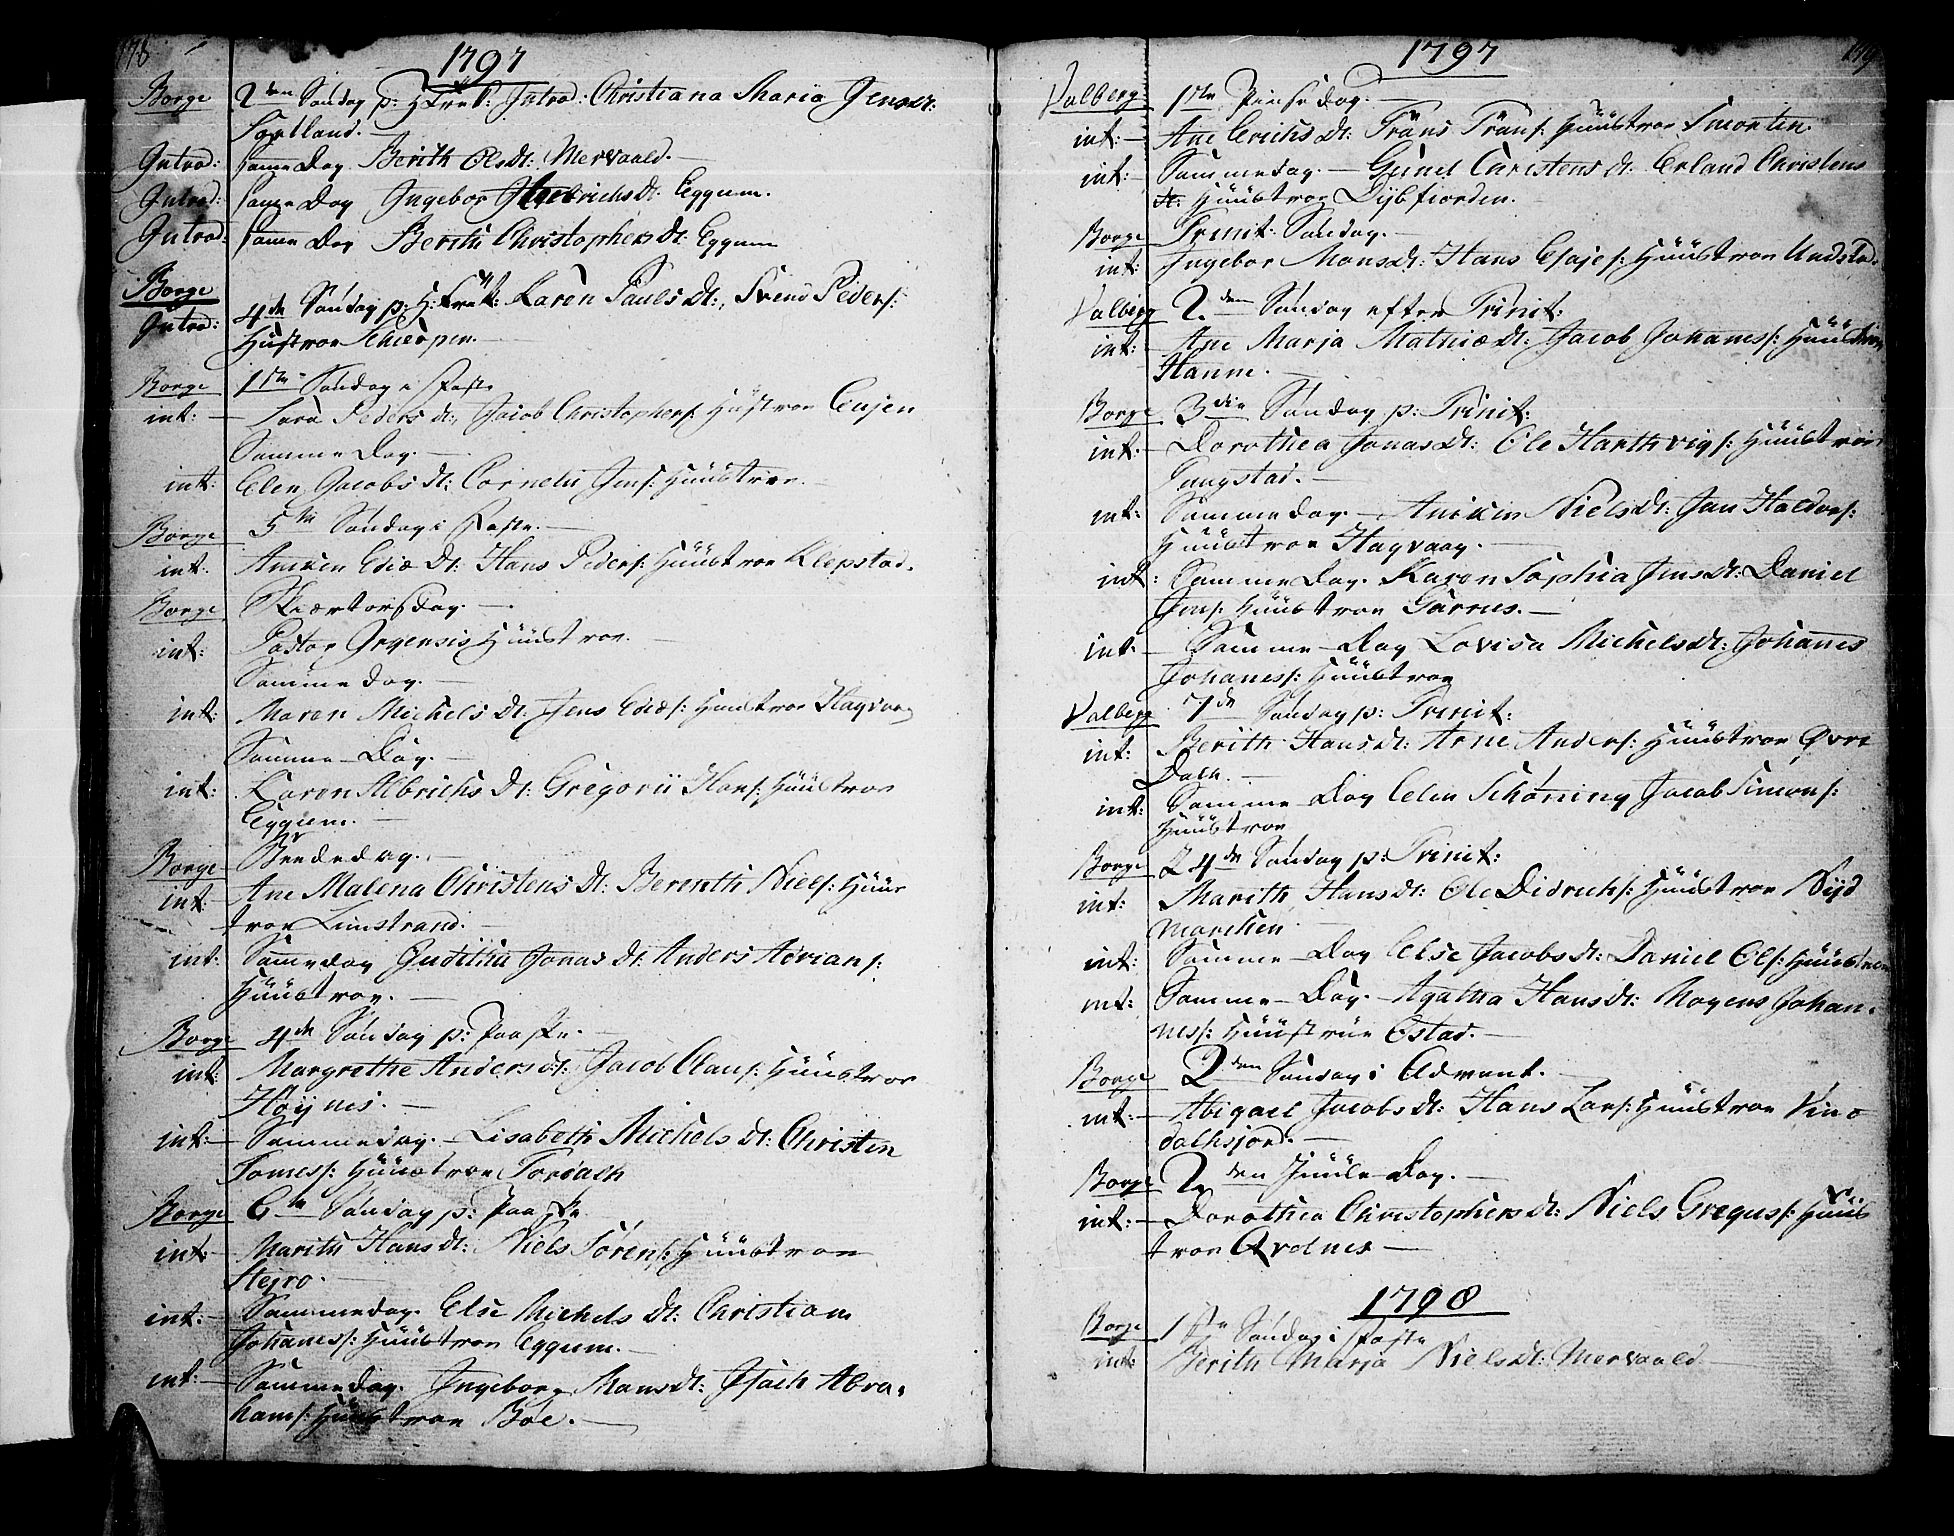 178
1797
Borge 2den Søndag p: H: Introd: Christiana Maria Jensdt:
Sortland.
Introd: samme Dag Berith Olsdt: Mervaald.
Introd: samme Dag Ingebor Dt: Eggum.
Introd: samme Dag Berith Christophers Dt: Eggum
Borge 4de Søndag p: H: Karen Pauls Dt:, Svend Peders:
Introd: Hustroe Schierpen.
Borge 1ste Søndag i Faste
int: Sara Peders dt: Jacob Christophers: Hustroe
Samme Dag.
int: Elen Jacobs dt: Cornelii Jens: Huustroe.
Borge 5te Søndag i Faste.
int. Aniken Ediæ Dt: Hans Peders: Huustroe Klepstad.
Borge Skiærtorsdag.
int: Pastor Huustroe.
Samme dag.
int: Maren Michels Dt: Jens Ediæs: Huustroe Hagvaag
Samme Dag.
int: Karen Albrichs Dt: Gregorii Hans: Huustroe
Eggum.
Borge Beededag.
int: Ane Malena Christens Dt: Berenth Niels: Huus
troe Limstrand.
int: Samme dag Judithe Jonas dt: Anders Adrians:
Huustroe.
Borge 4de Søndag p: Paaske.
int: Margrethe Anders dt: Jacob Claus: Huustroe
Høynes.
int: Sammedag. Lisabeth Michels dt: Christen
Tomess: Huustroe Tordalch
Borge 6te Søndag p: Paaske
int: Marith Hansdt: Niels Sørens: Huustroe
Steiro.
int: Sammedag. Else Michels Dt: Christian
Johaness: Huustroe Eggum.
int: Sammedag. Ingeborg Mansdt: Isach Abra-
hams: Huustroe Bøe.
1797
179
Valberg: 1ste Pinsedag.
int: Ane Erichs dt: Frans Frans: Huustroe Smorten.
int: Sammedag. Gunel Christens dt: Erland Christens
Huustroe Dybfiorden.
Borge Trinit. Søndag.
int: Ingebor Monsdt: Hans Esajes: Huustroe Undstad.
Valberg 2den Søndag efter Trinit:
int: Ane Marja Mathiædt: Jacob Johaness: Huustroe
Hanne.
Borge 3die Søndag p: Trinit:
int: Dorothea Jonasdt: Ole Harthvigs: Huustroe
Tangstad.
int: Sammedag. Aniken Nielsdt: Jan Haldors:
Huustroe Hagvaag.
int: Samme Dag. Karen Sophia Jensdt: Daniel
Jens: Huustroe Garnes.
int. Samme Dag Lovisa Michelsdt: Johanes
Johaness: Huustroe
Valberg 7de Søndag p: Trinit:
int: Berith Hansdt: Arne Anders: Huustroe Øvre
Dalh.
int: Samme Dag Elen Schøning Jacob Simons:
Huustroe
Borge 24de Søndag p: Trinit:
int: Marith Hansdt: Ole Didrichs: Huustroe Niid
Marchen
int: Samme Dag Else Jacobsdt: Daniel Ols: Huustroe
int: Samme Dag. Agatha Hansdt: Mogens Johan-
ness: Huustrue Ostad.
Borge 2den Søndag i Advent.
int: Abigael Jacobsdt: Hans Lars: Huustroe Vin
dalhsjord.
Borge 2den Juule Dag.
int: Dorothea Christophersdt: Niels Gregus: Huus
troe Qvalnes
1798
Borge 1ste Søndag i Faste
int: Berith Marja Nielsdt: Mervaald